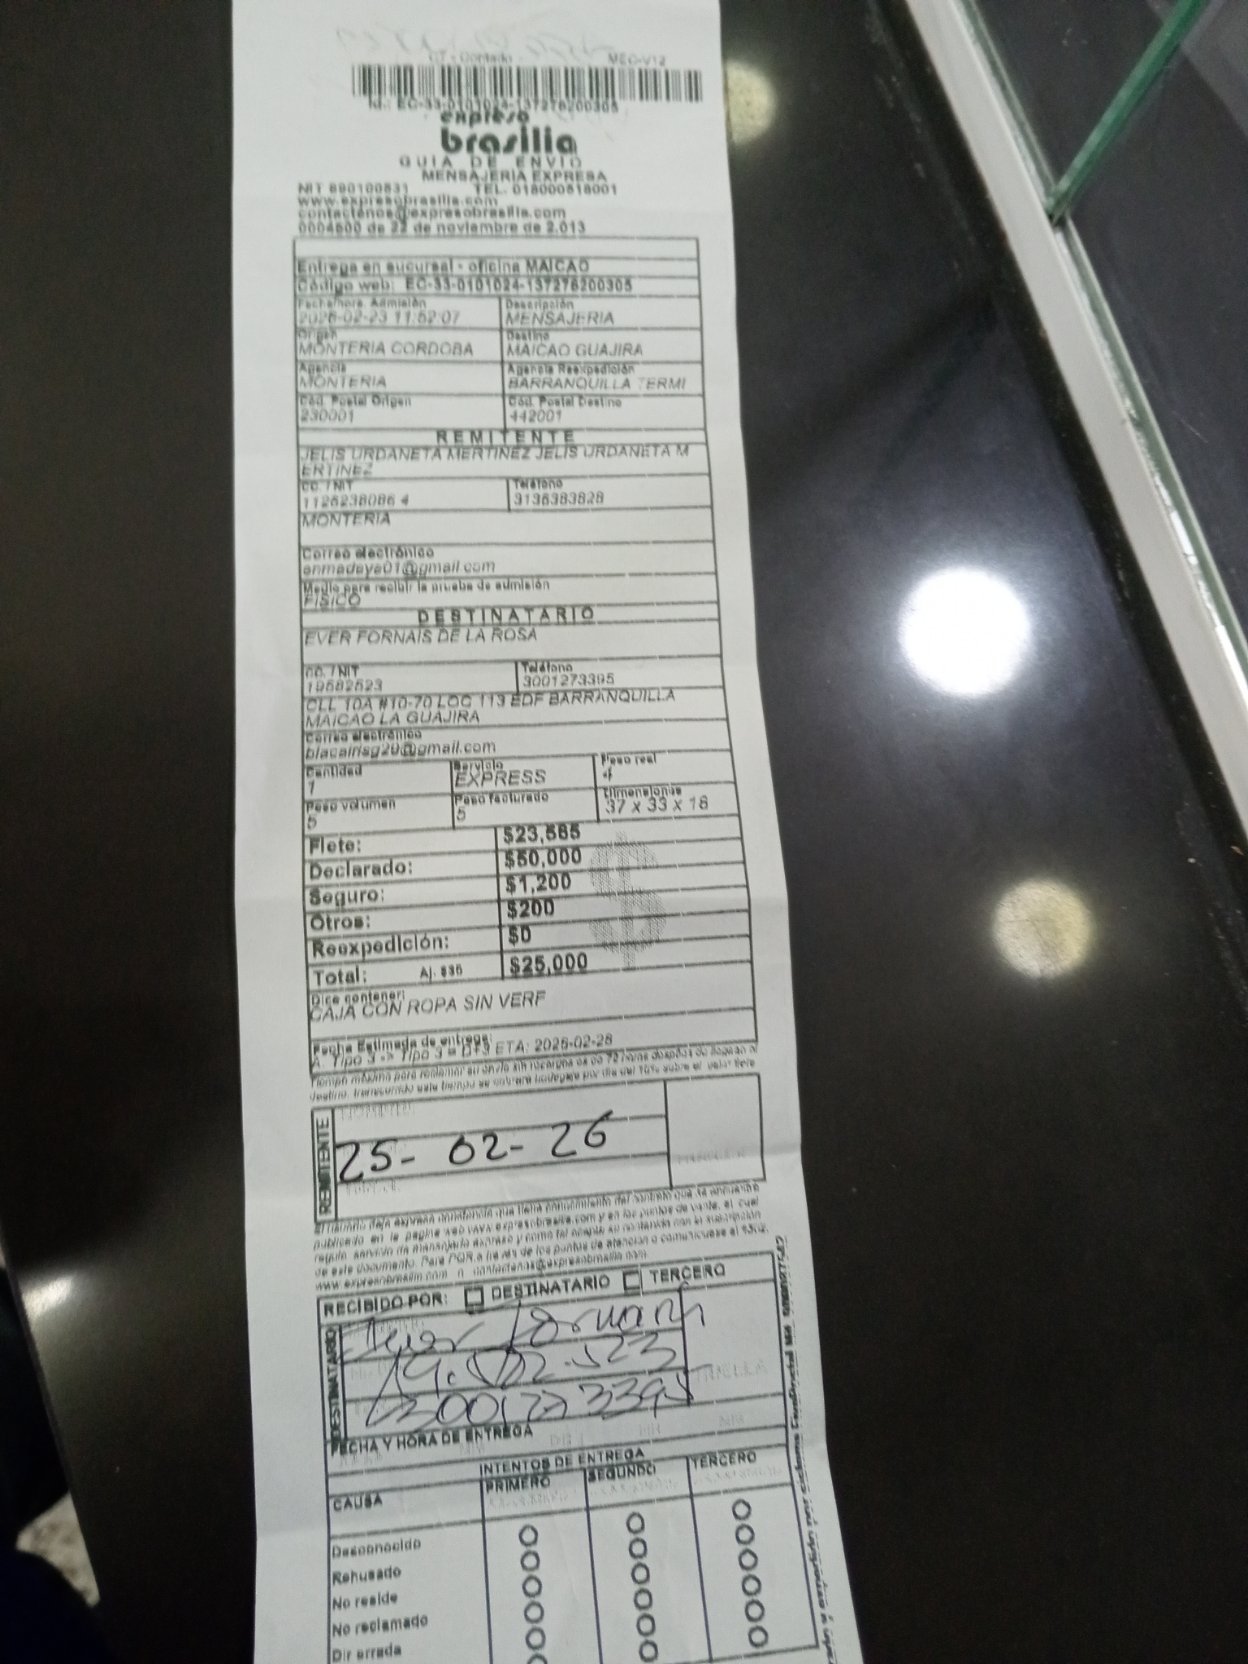 GT - Contado - MEC-V12
Id.: EC-33-0101024-137276200305
expreso
brasilia
GUIA DE ENVIO
MENSAJERIA EXPRESA
NIT 890100531 TEL. 018000518001
www.expresobrasilia.com
contactenos@expresobrasilia.com
0004600 de 22 de noviembre de 2.013
Entrega en sucursal - oficina MAICAO
Código web: EC-33-0101024-137276200305
Fecha/hora. Admisión Descripción
2026-02-23 11:52:07 MENSAJERIA
Origen Destino
MONTERIA CORDOBA MAICAO GUAJIRA
Agencia Agencia Reexpedición
MONTERIA BARRANQUILLA TERMI
Cód. Postal Origen Cód. Postal Destino
230001 442001
REMITENTE
JELIS URDANETA MERTINEZ JELIS URDANETA M
ERTINEZ
CC. / NIT Teléfono
1126238086 4 3136383828
MONTERIA
Correo electrónico
enmadeya01@gmail.com
Medio para recibir la prueba de admisión
FISICO
DESTINATARIO
EVER FORNAIS DE LA ROSA
CC. / NIT Teléfono
19582523 3001273395
CLL 10A #10-70 LOC 113 EDF BARRANQUILLA
MAICAO LA GUAJIRA
Correo electrónico
blacairisg29@gmail.com
Cantidad Servicio Peso real
1 EXPRESS 4
Peso volumen Peso facturado Dimensiones
5 5 37 x 33 x 18
Flete: $23,565
Declarado: $50,000
Seguro: $1,200
Otros: $200
Reexpedición: $0
Total: Aj. $35 $25,000
Dice contener:
CAJA CON ROPA SIN VERF
Fecha Estimada de entrega:
A. Tipo 3 -> Tipo 3 = D+3 ETA: 2026-02-28
Tiempo máximo para reclamar su envío sin recargos es de 72 horas después de llegado al
destino, transcurrido este tiempo se cobrará bodegaje por día del 10% sobre el valor flete
REMITENTE
25- 02- 26
El usuario deja expresa constancia que tiene conocimiento del contrato que se encuentra
publicado en la pagina web www.expresobrasilia.com y en los puntos de venta, el cual
regula servicio de mensajería expreso y como tal acepta su contenido con la suscripción
de este documento. Para PQR a través de los puntos de atención o comuníquese al
www.expresobrasilia.com o contactenos@expresobrasilia.com
RECIBIDO POR: DESTINATARIO TERCERO
DESTINATARIO
Ever Fornaris
19.582.523
3001273395
FECHA Y HORA DE ENTREGA
INTENTOS DE ENTREGA
CAUSA PRIMERO SEGUNDO TERCERO
Desconocido
Rehusado
No reside
No reclamado
Dir errada